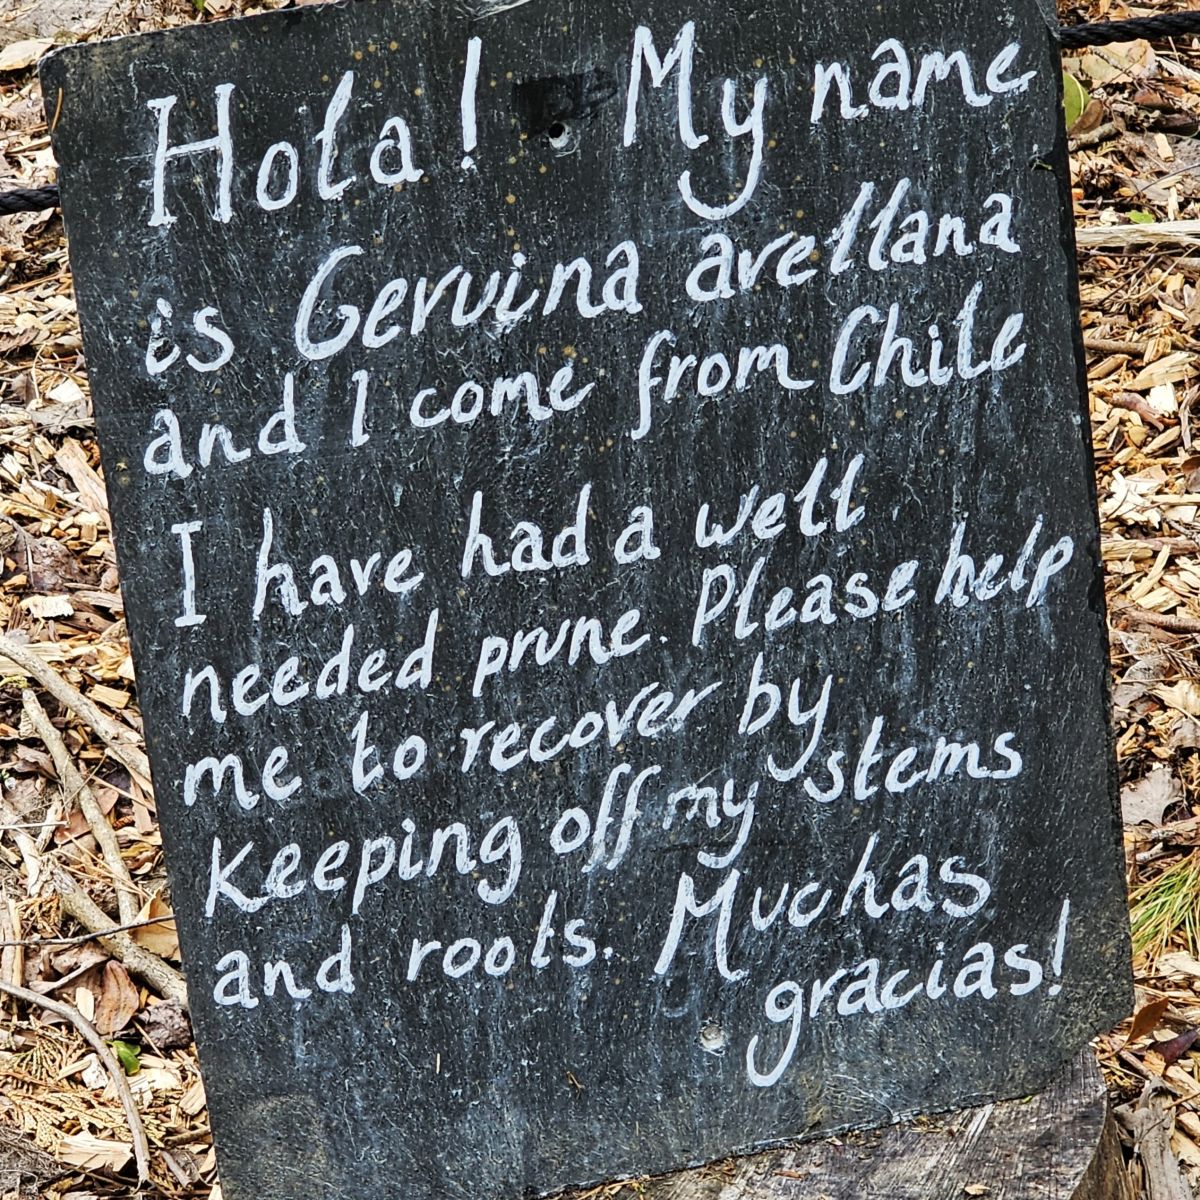 Hola! My name
is Gevuina avellana
and I come from Chile
I have had a well
needed prune. Please help
me to recover by
keeping off my stems
and roots. Muchas
gracias!